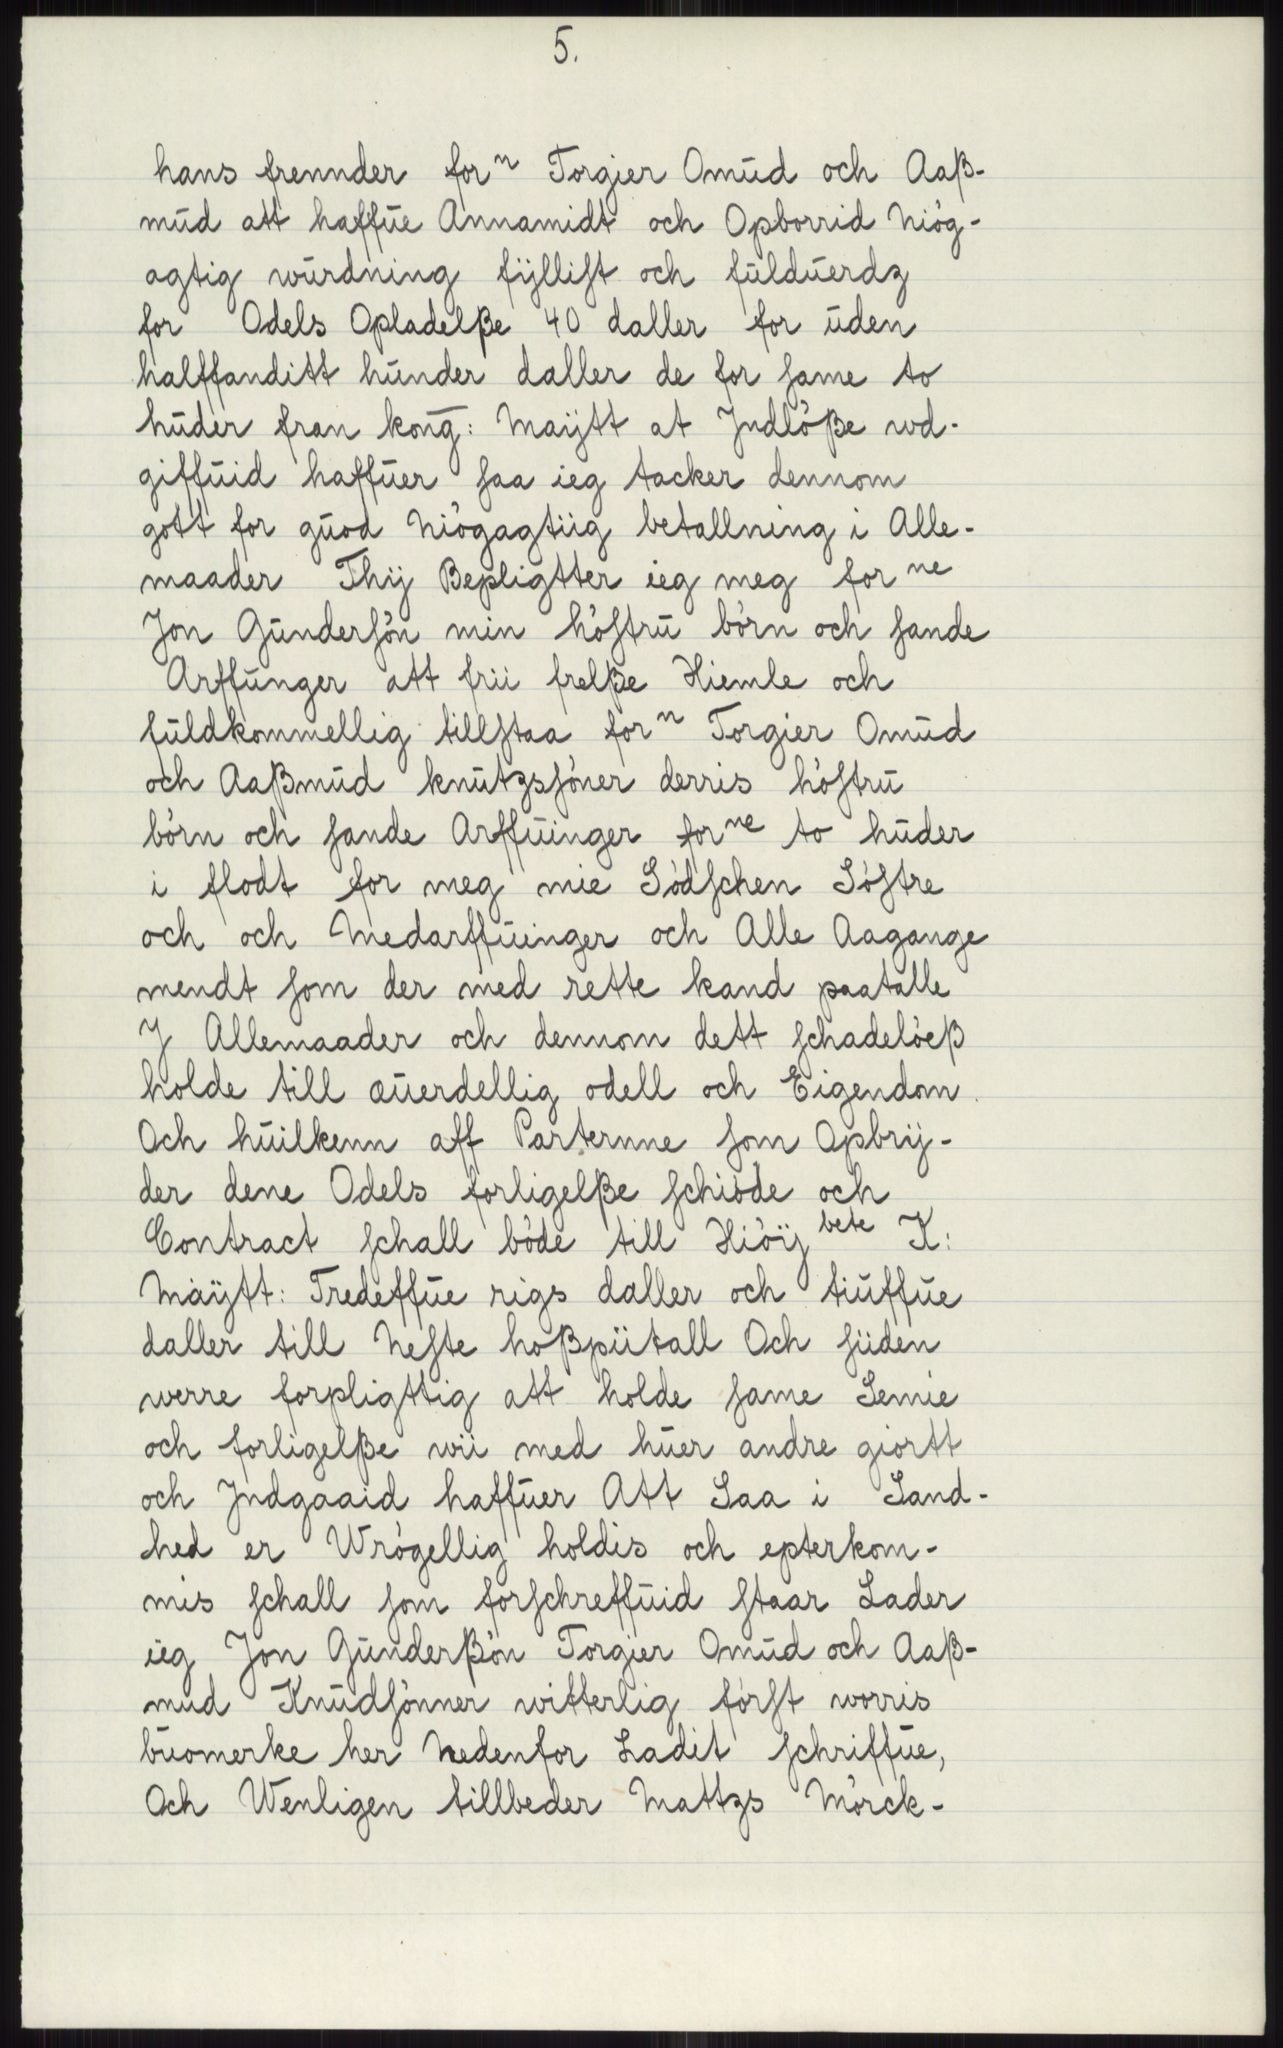 5.
hans frennder forⁿ Torgier Omŭd och Aaß-
mŭd att haffŭe Annamidt och Opborrid Niög-
agtig wŭrdning fÿllist och fŭldŭerdz
for Odels Opladelße 40 daller for ŭden
halffanditt hŭnder daller de for same to
hŭder fran kong: Maÿtt at Jndlöße wd-
giffŭid haffŭer saa ieg tacker dennom
gott for gŭod Niögagtiig betallning i Alle-
maader Thij Bepligtter ieg meg for ne
Jon Gŭndersön min höstrŭ börn och sande
Arffŭnger att frii frelße Hiemle och
fŭldkommellig tillstaa forⁿ Torgier Omŭd
och Aaßmŭd knŭtzsöner derris höstrŭ
börn och sande Arffŭinger for ne to hŭder
i flodt for meg mie Södschen Söstre
och och Medarffŭinger och Alle Aagange
mendt som der med rette kand paatalle
J Allemaader och dennom dett schadelöeß
holde till æŭerdellig odell och Eigendom.
Och hŭilkenn aff Parternne som Opbrij-
der dene Odels forligelße schiöde och
Contract schall böde till Hiöij bete K:
Maÿtt: Tredeffŭe rigs daller och tiŭffŭe
daller till Neste hoßpiitall Och siiden
werre forpligttig att holde same Semie
och forligelße wii med hŭer andre giortt
och Jndgaaid haffŭer Att Saa i Sand-
hed er Wrögellig holdis och epterkom-
mis schall som forschreffŭid staar Lader
ieg Jon Gŭnderßön Torgier Omŭd och Aaß-
mŭd Knŭdsönner witterlig först worris
bŭomerke her Nedenfor Ladit schriffŭe,
Och Wenligen tillbeder Mattzs Mörck-